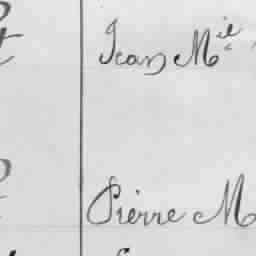 Jean Mil
Pierre M